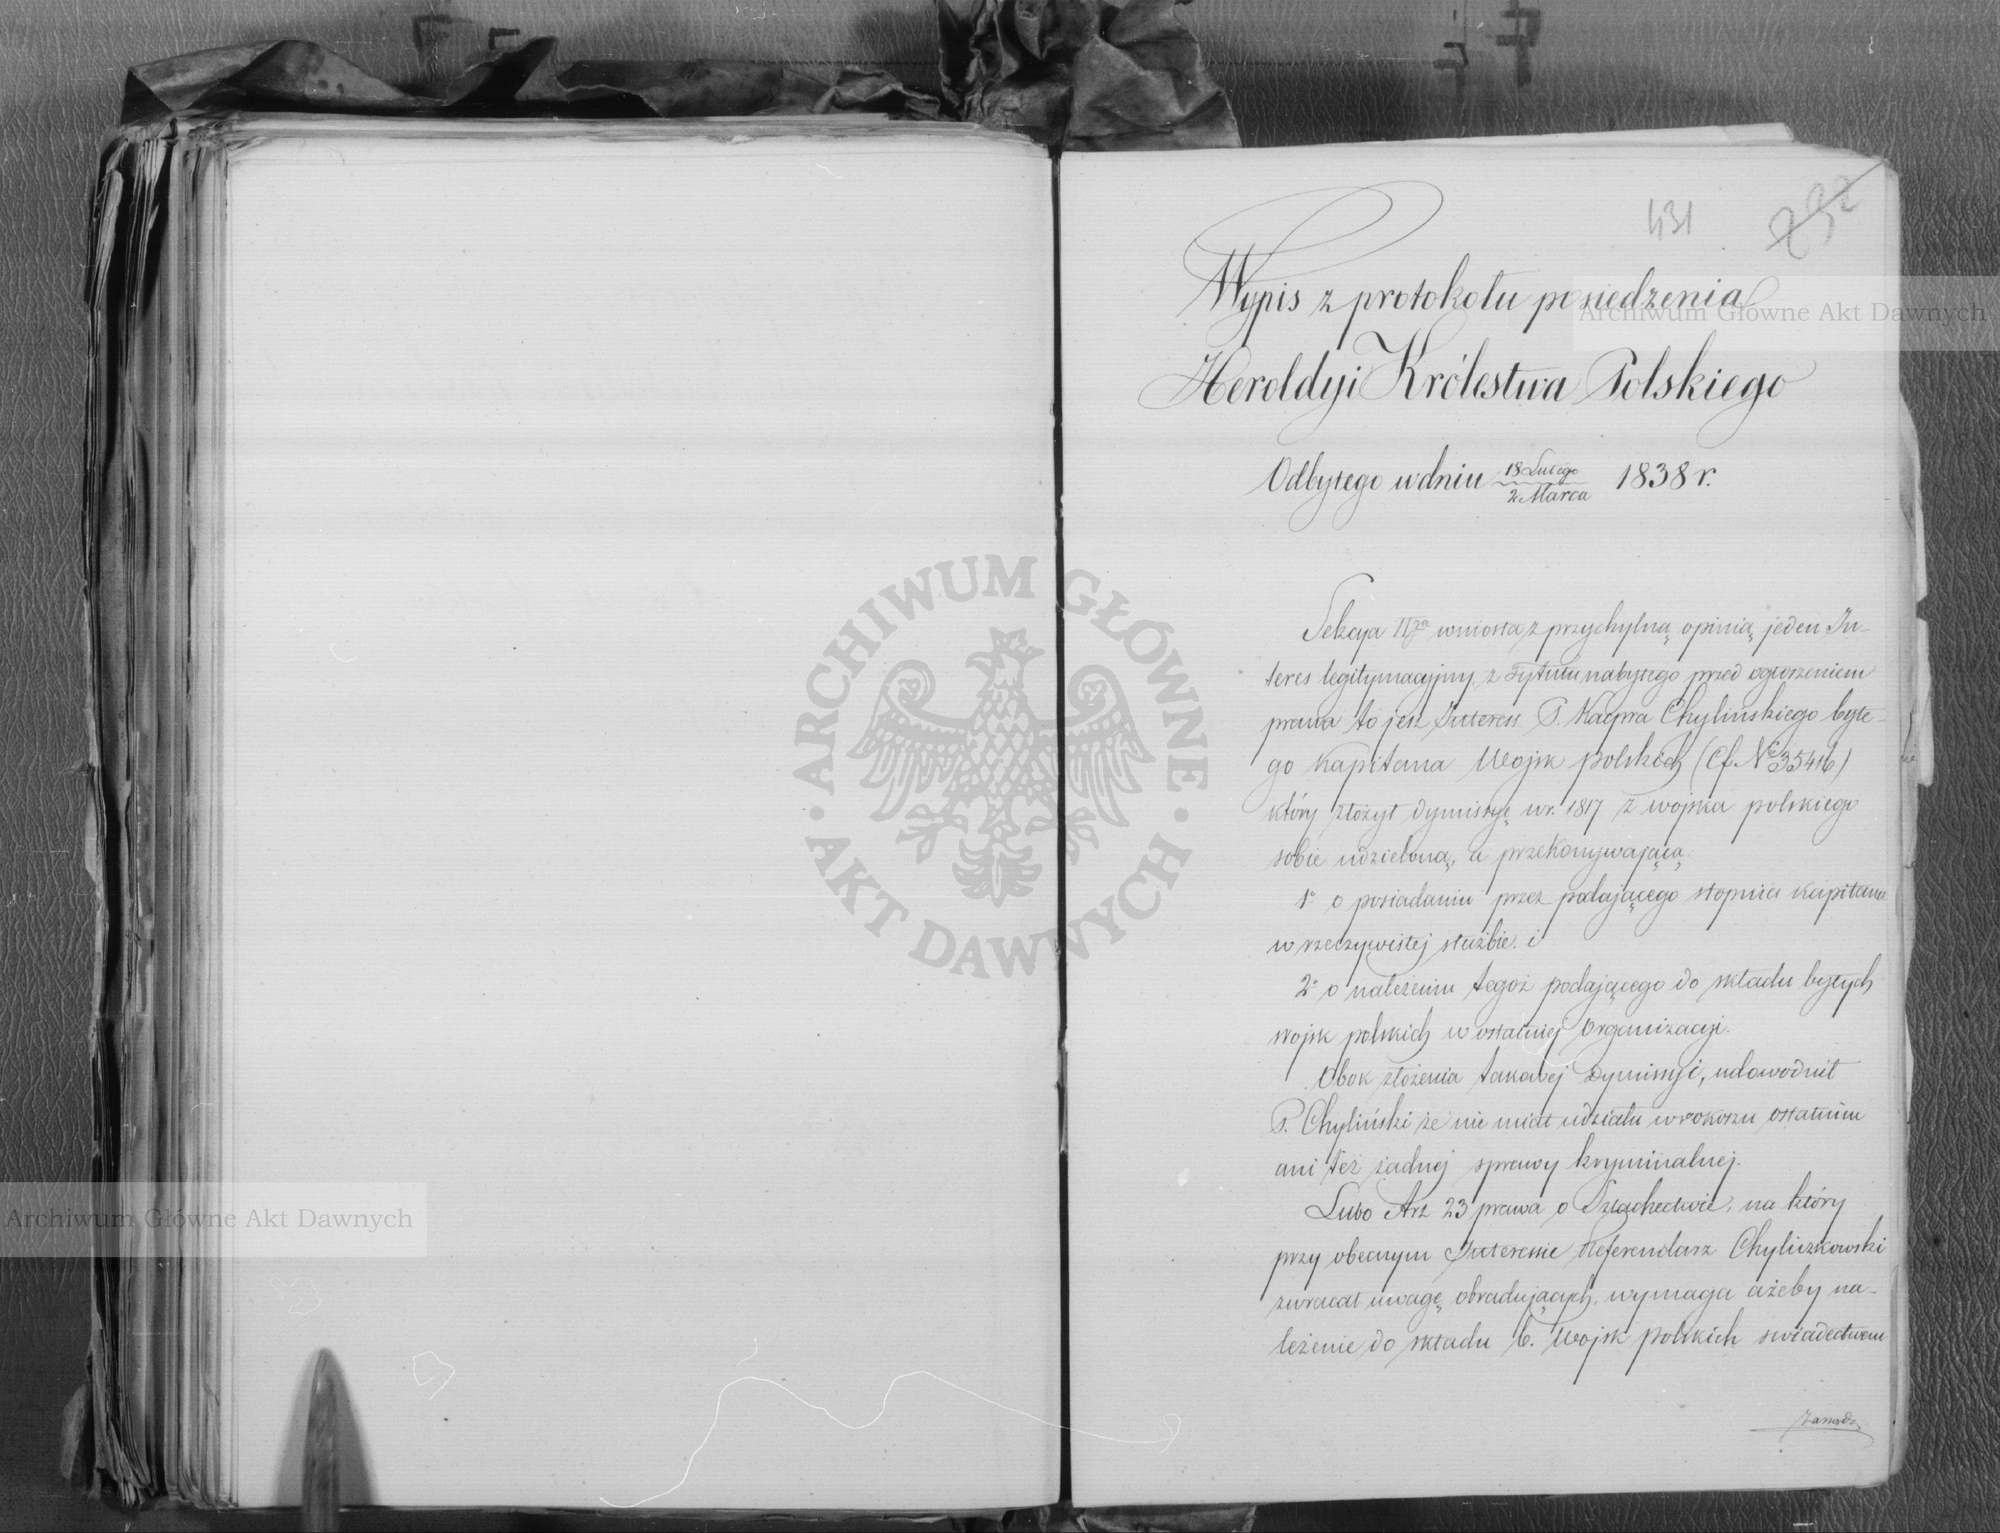 431
232
Wypis z protokołu posiedzenia
Heroldyi Królestwa Polskiego
Odbytego w dniu 18 Lutego / 2 Marca 1838 r.
Sekcya IIga wniosła z przychylną opinią jeden In-
teres legitymacyjny z tytułu nabytego przed ogłoszeniem
prawa to jest Interess P. Kacpra Chylińskiego byłe-
go Kapitana Wojsk polskich (Cf. No 35416)
który złożył dymissyę w r. 1817 z wojska polskiego
sobie udzieloną, a przekonywającą
1o o posiadaniu przez podającego stopnia kapitana
w rzeczywistej służbie. i
2o o należeniu tegoż podającego do składu byłych
wojsk polskich w ostatniej Organizacyi.
Obok złożenia takowej dymissyi, udowodnił
P. Chyliński że nie miał udziału w rokoszu ostatnim
ani też żadnej sprawy kryminalnej.
Lubo Art 23 prawa o Szlachectwie, na który
przy obecnym Interessie Referendarz Chyliczkowski
zwracał uwagę obradujących, wymaga ażeby na-
leżenie do składu b. Wojsk polskich świadectwem
Archiwum Główne Akt Dawnych
Archiwum Główne Akt Dawnych
ARCHIWUM GŁÓWNE · AKT DAWNYCH ·